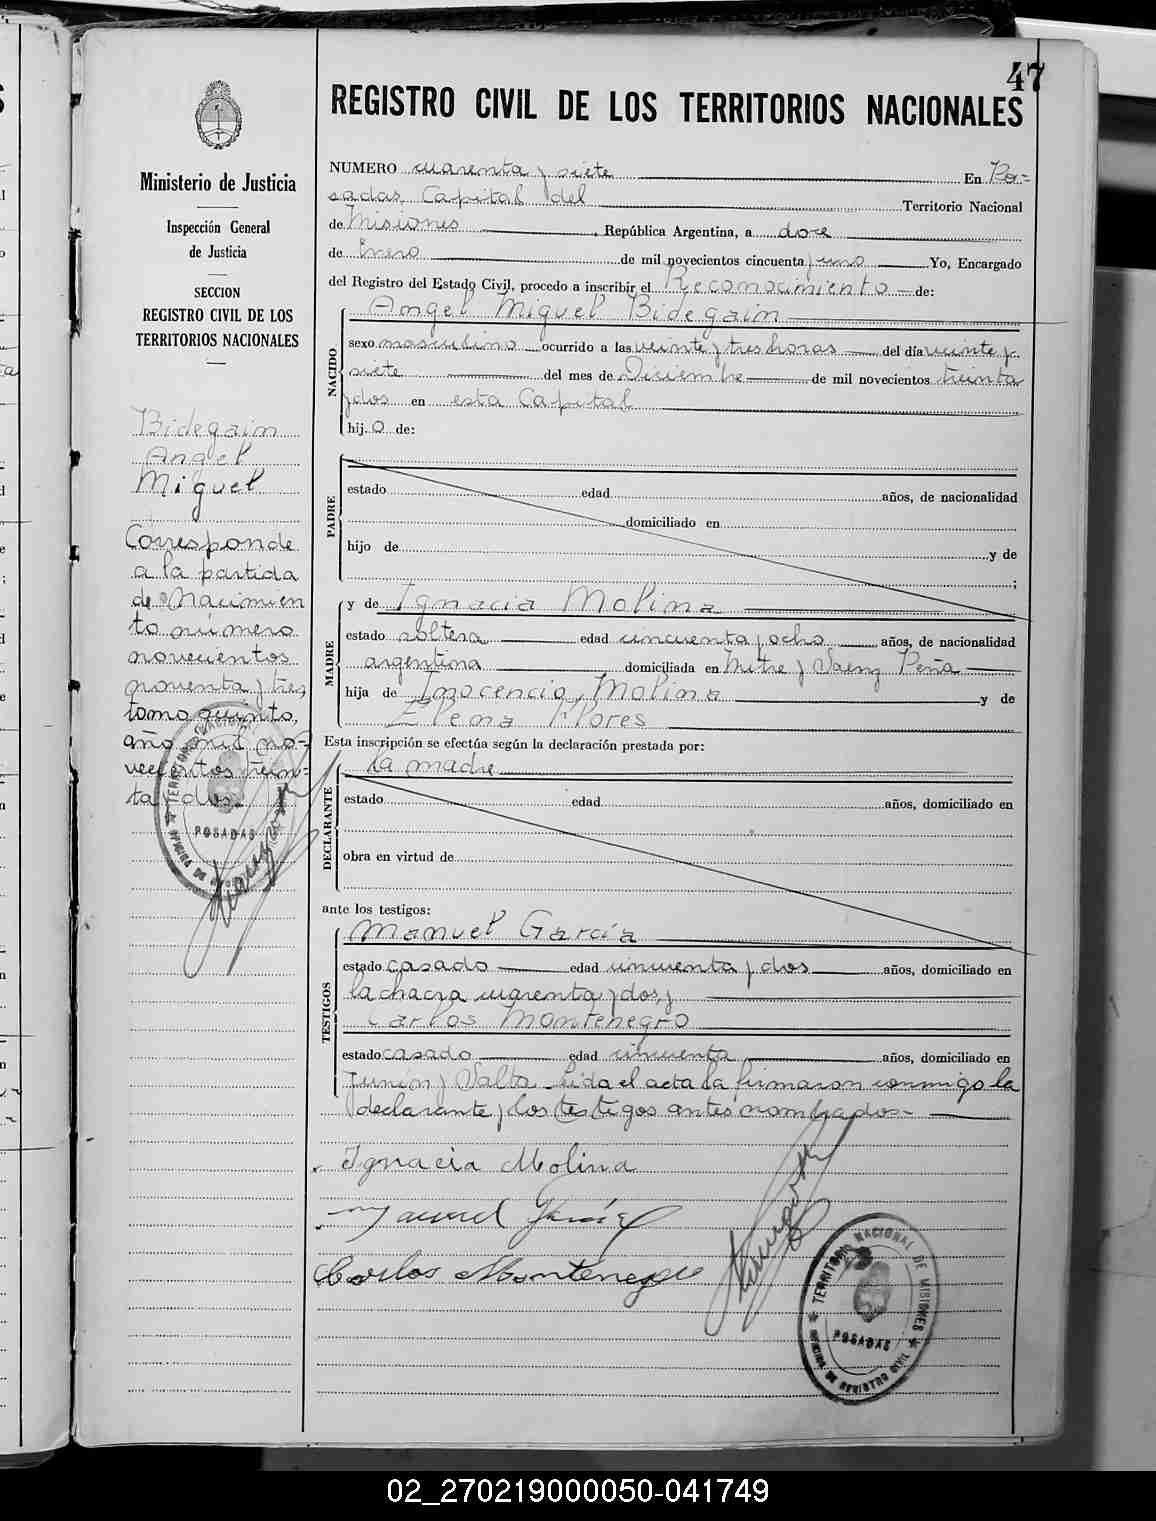 47
REGISTRO CIVIL DE LOS TERRITORIOS NACIONALES
Ministerio de Justicia
Inspección General
de Justicia
SECCION
REGISTRO CIVIL DE LOS
TERRITORIOS NACIONALES
Bidegain
Angel
Miguel
Corresponde
a la partida
de Nacimien
to número
novecientos
noventa y tres,
tomo quinto,
año mil no-
vecientos trein-
ta y dos.
POSADAS
NUMERO cuarenta y siete En Po-
sadas, Capital del Territorio Nacional
de Misiones, República Argentina, a doce
de Enero de mil novecientos cincuenta y uno Yo, Encargado
del Registro del Estado Civil, procedo a inscribir el Reconocimiento de:
Angel Miguel Bidegain
NACIDO
sexo masculino ocurrido a las veinte y tres horas del día veinte y
siete del mes de Diciembre de mil novecientos treinta
y dos en esta Capital
hij.o de:
PADRE
estado edad años, de nacionalidad
domiciliado en
hijo de y de
;
MADRE
y de Ignacia Molina
estado soltera edad cincuenta y ocho años, de nacionalidad
argentina domiciliada en Mitre y Saenz Peña
hija de Inocencio Molina y de
Elena Flores
Esta inscripción se efectúa según la declaración prestada por:
la madre
DECLARANTE
estado edad años, domiciliado en
obra en virtud de
ante los testigos:
TESTIGOS
Manuel García
estado casado edad cincuenta y dos años, domiciliado en
la chacra cuarenta y dos, y
Carlos Montenegro
estado casado edad cincuenta años, domiciliado en
Junín y Salta. Leida el acta la firmaron conmigo la
declarante y los testigos antes nombrados-
Ignacia Molina
Manuel García
Carlos Montenegro
TERRITORIO NACIONAL DE MISIONES
POSADAS
OFICINA DE REGISTRO CIVIL
02_270219000050-041749